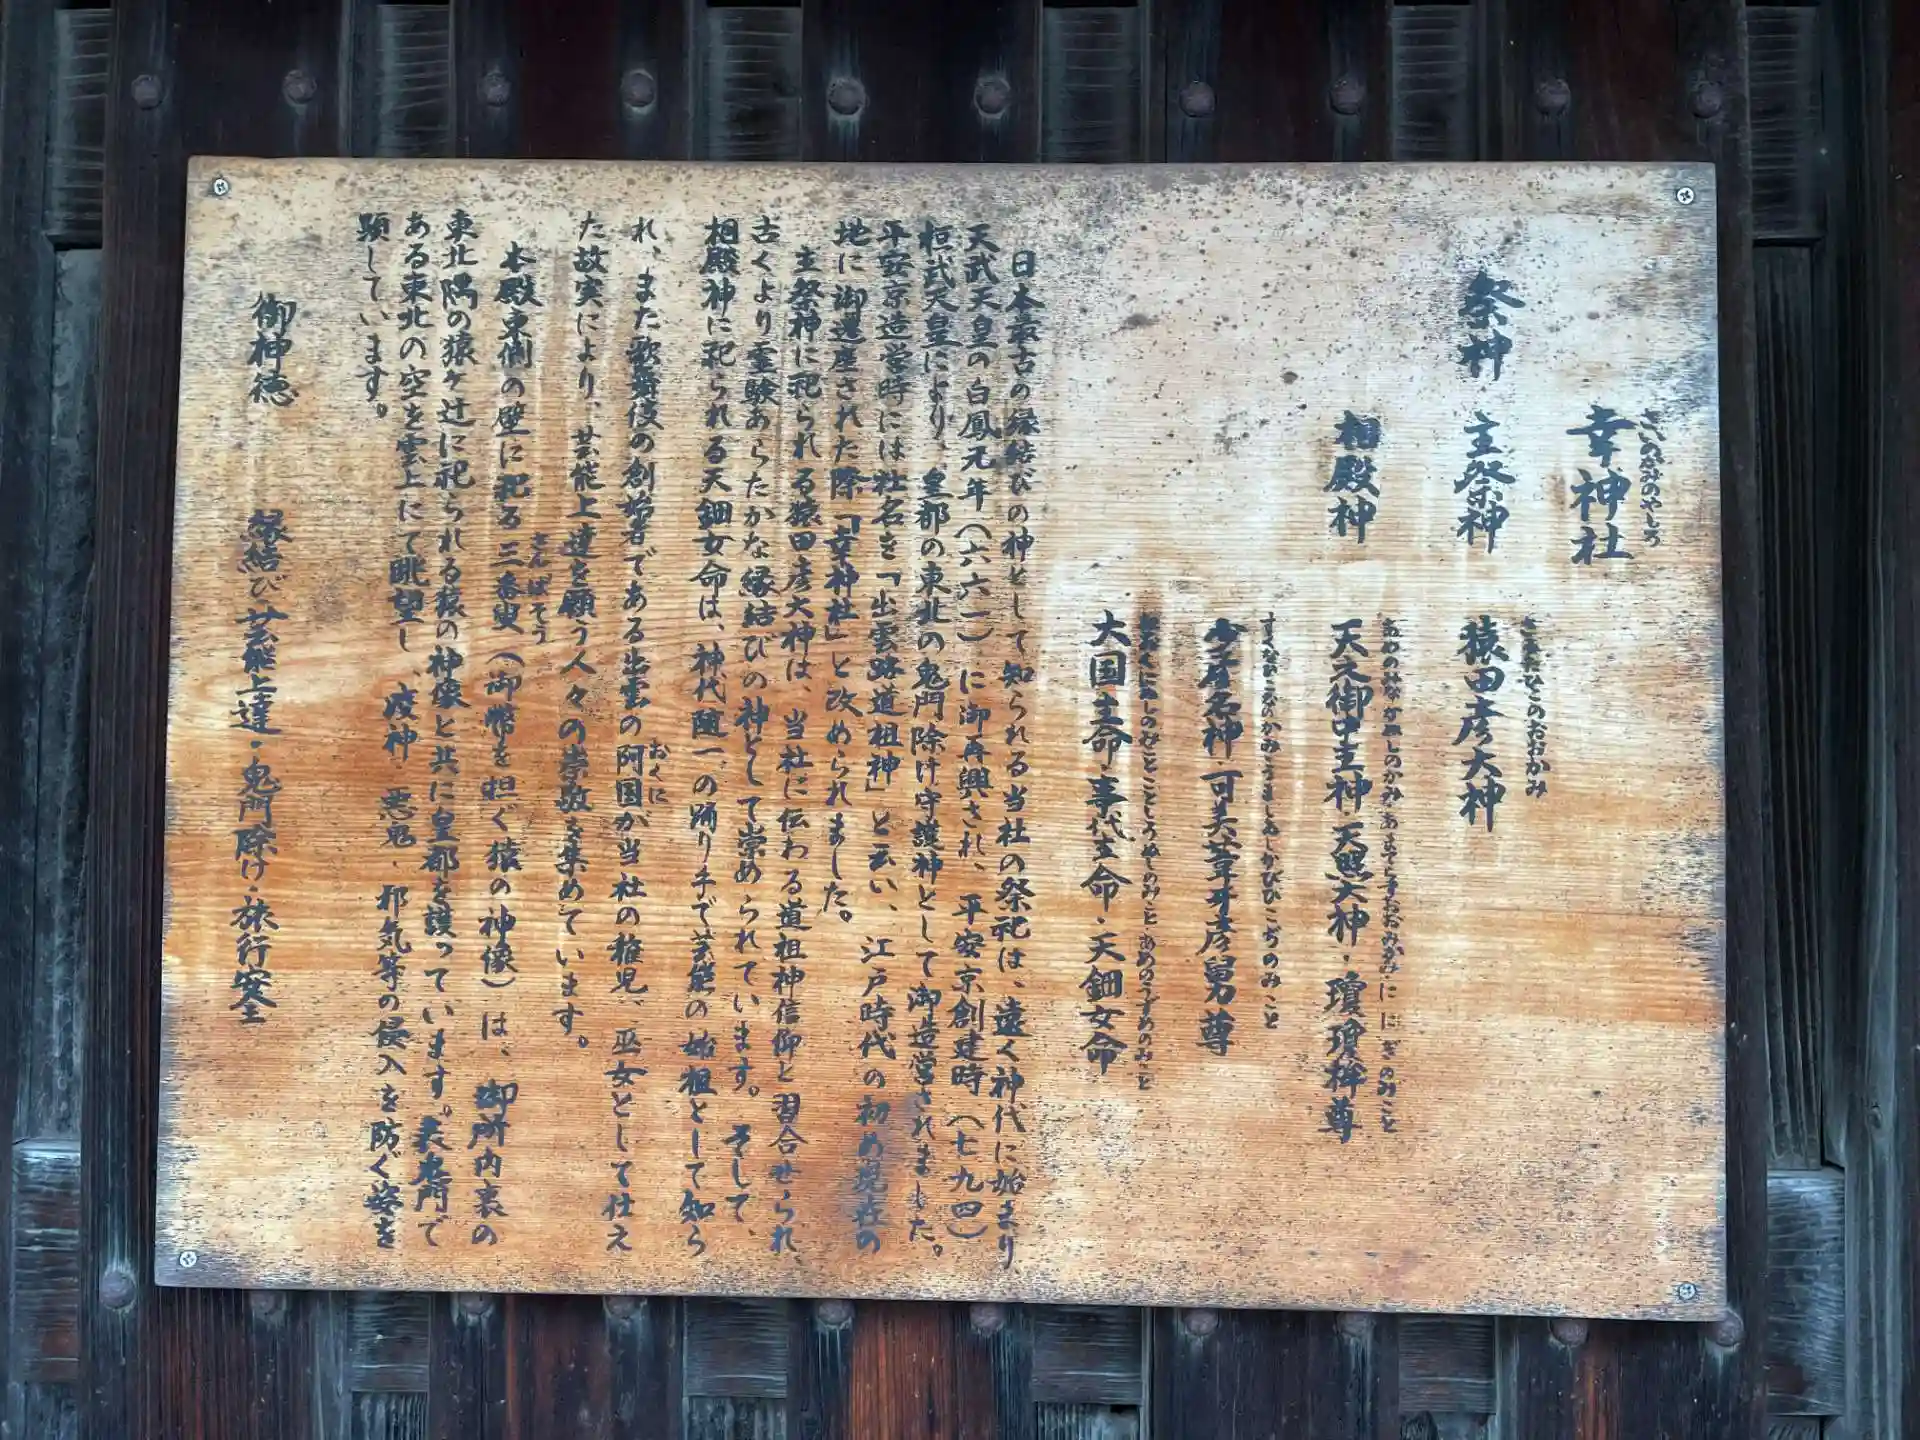 さいのかみのやしろ
幸神社
祭神 主祭神 猿田彦大神
さるたひこのおおかみ
相殿神 天之御中主神・天照大神・瓊瓊杵尊
あめのみなかぬしのかみ・あまてらすおおみかみ・ににぎのみこと
少彦名神・可美葦牙彦舅尊
すくなひこなのかみ・うましあしかびひこぢのみこと
大国主命・事代主命・天鈿女命
おおくにぬしのみこと・ことしろぬしのみこと・あめのうずめのみこと
日本最古の縁結びの神として知られる当社の祭祀は、遠く神代に始まり、
天武天皇の白鳳元年(六六一)に御再興され、平安京創建時(七九四)
桓武天皇により、皇都の東北の鬼門除け守護神として御造営されました。
平安京造営時には社名を「出雲路道祖神」と云い、江戸時代の初め現在の
地に御遷座された際「幸神社」と改められました。
主祭神に祀られる猿田彦大神は、当社に伝わる道祖神信仰と習合せられ、
古くより霊験あらたかな縁結びの神として崇められています。そして、
相殿神に祀られる天鈿女命は、神代随一の踊り手で芸能の始祖として知ら
れ、また歌舞伎の創始者である出雲の阿国が当社の稚児、巫女として仕え
おくに
た故実により、芸能上達を願う人々の崇敬を集めています。
本殿東側の壁に祀る三番叟(御幣を担ぐ猿の神像)は、御所内裏の
さんばそう
東北隅の猿ヶ辻に祀られる猿の神像と共に皇都を護っています。表鬼門で
ある東北の空を雲上にて眺望し、疫神、悪鬼、邪気等の侵入を防ぐ姿を
顕しています。
御神徳 縁結び・芸能上達・鬼門除け・旅行安全